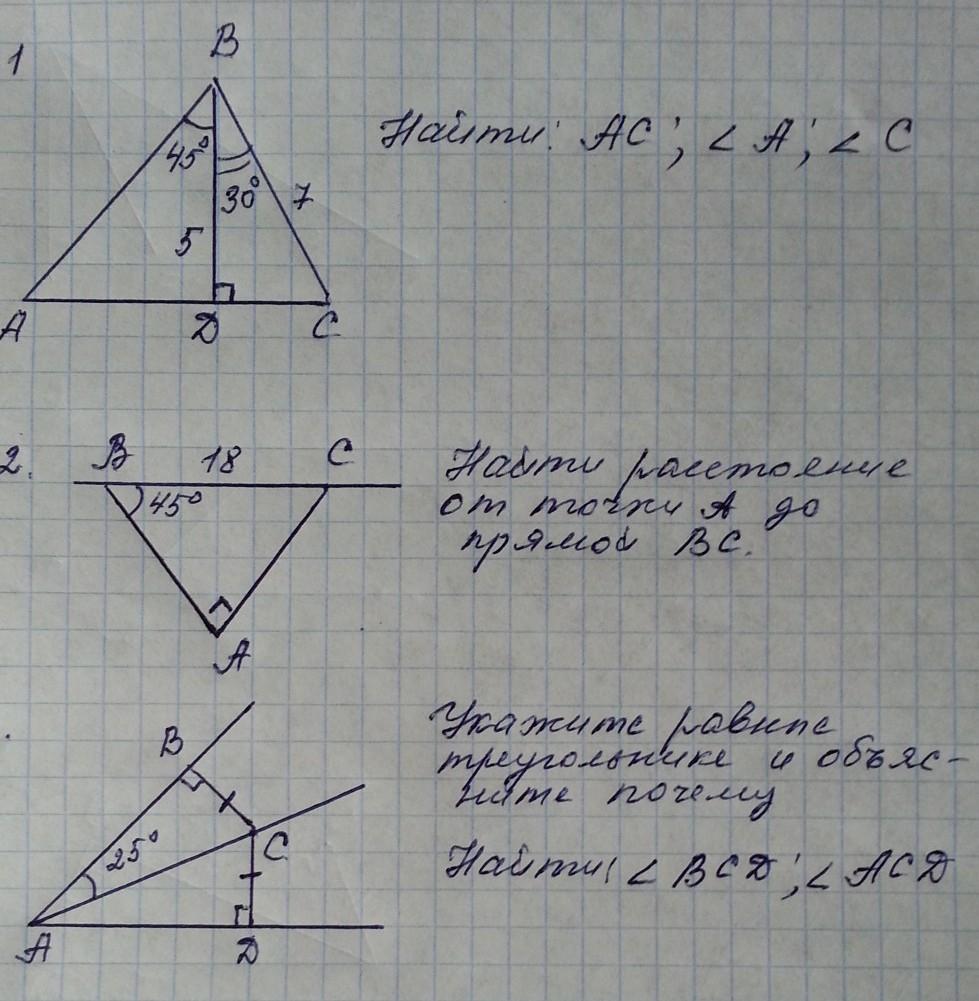 1
B
Найти: AC; ∠A; ∠C
45°
30°
7
5
A
D
C
2.
B
18
C
45°
A
Найти расстояние
от точки A до
прямой BC.
Укажите равные
треугольники и объяс-
ните почему
B
25°
C
A
D
Найти: ∠BCD; ∠ACD